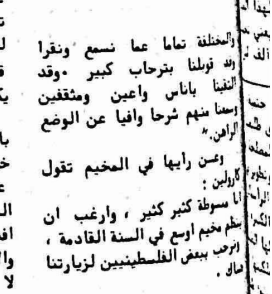 والمختلفة تماما عما نسمع ونقرأ
وقد قوبلنا بترحاب كبير . وقد
التقينا باناس واعين ومثقفين
وسمعنا منهم شرحا وافيا عن الوضع
الراهن . "
وعن رأيها في المخيم تقول
كارولين :
انا مبسوطة كثير كثير ، وارغب ان
ينظم مخيم اوسع في السنة القادمة ،
ونرحب ببعض الفلسطينيين لزيارتنا
هناك .